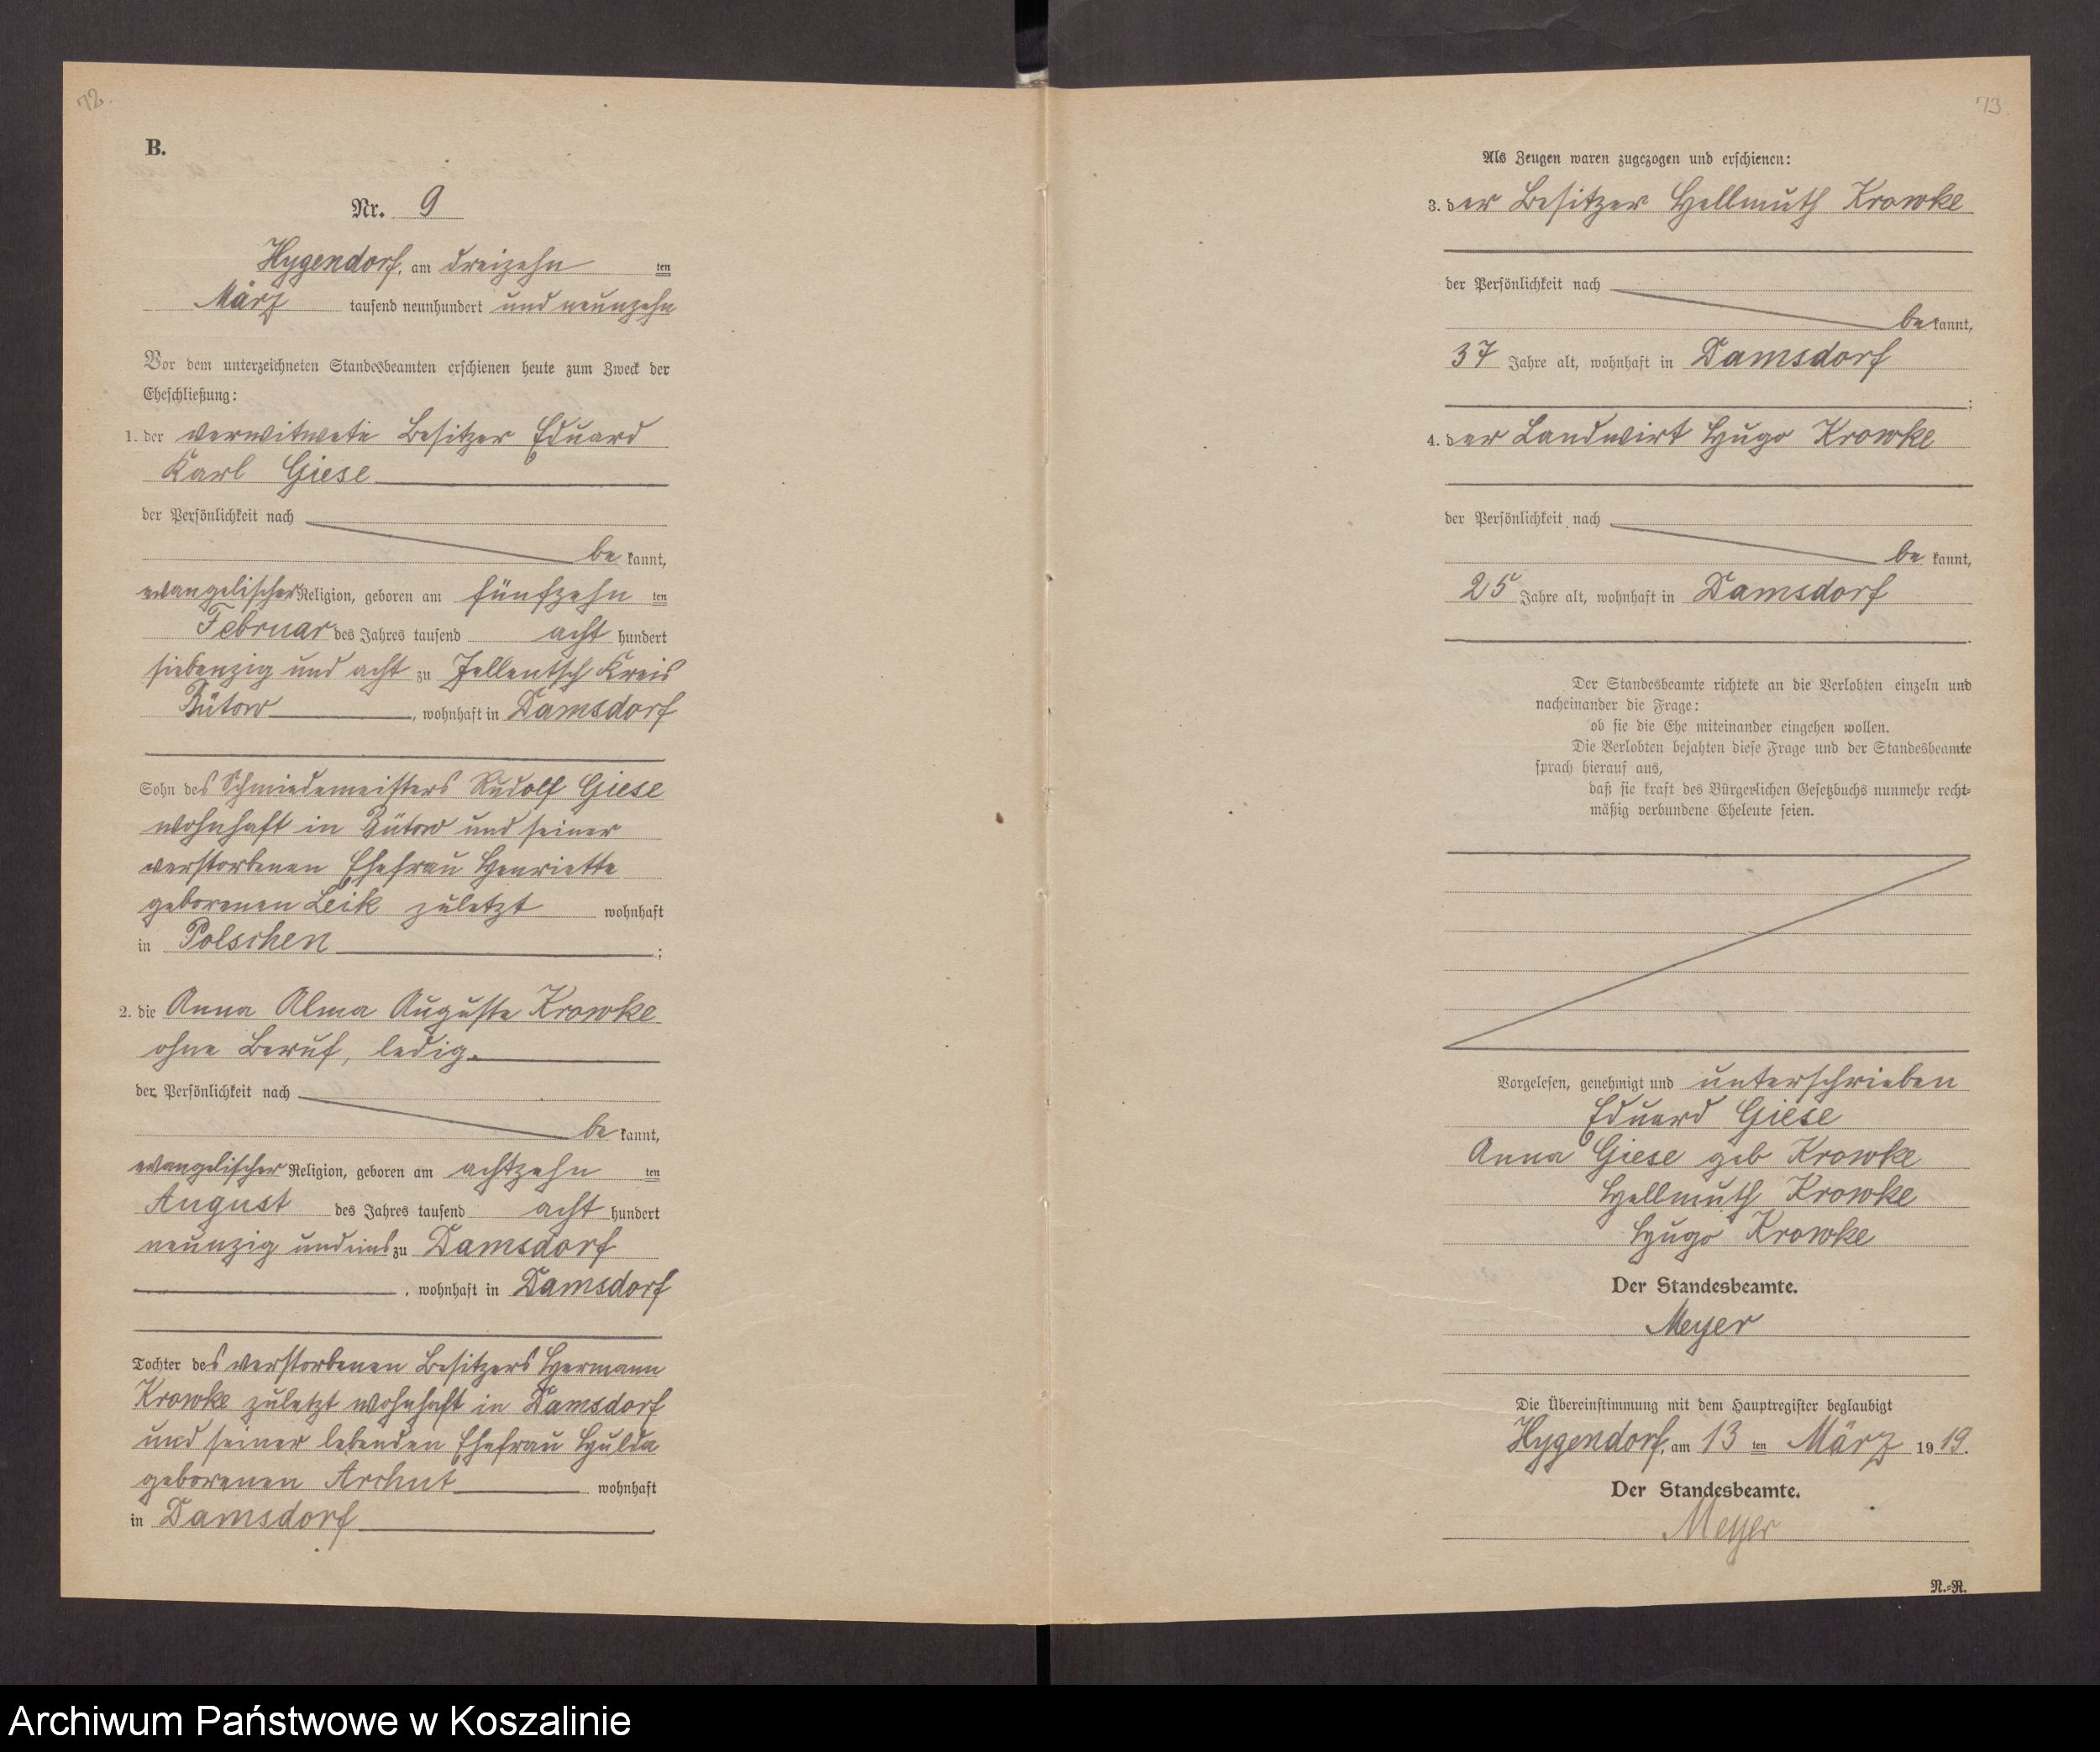 72.
B.
Nr. 9
Hygendorf, am dreizehn ten
März tausend neunhundert und neunzehn
Vor dem unterzeichneten Standesbeamten erschienen heute zum Zweck der
Eheschließung:
1. der verwitwete Besitzer Eduard
Karl Giese
der Persönlichkeit nach
be kannt,
evangelischer Religion, geboren am fünfzehn ten
Februar des Jahres tausend acht hundert
siebenzig und acht zu Jellentsch Kreis
Bütow, wohnhaft in Damsdorf
Sohn des Schmiedemeisters Rudolf Giese
wohnhaft in Bütow und seiner
verstorbenen Ehefrau Henriette
geborenen Leik zuletzt wohnhaft
in Polschen ;
2. die Anna Alma Auguste Krowke
ohne Beruf, ledig.
der Persönlichkeit nach
be kannt,
evangelischer Religion, geboren am achtzehn ten
August des Jahres tausend acht hundert
neunzig und eins zu Damsdorf
, wohnhaft in Damsdorf
Tochter des verstorbenen Besitzers Hermann
Krowke zuletzt wohnhaft in Damsdorf
und seiner lebenden Ehefrau Hulda
geborenen Archut wohnhaft
in Damsdorf .
73
Als Zeugen waren zugezogen und erschienen:
3. der Besitzer Hellmuth Krowke
der Persönlichkeit nach
be kannt,
37 Jahre alt, wohnhaft in Damsdorf
;
4. der Landwirt Hugo Krowke
der Persönlichkeit nach
be kannt,
25 Jahre alt, wohnhaft in Damsdorf
.
Der Standesbeamte richtete an die Verlobten einzeln und
nacheinander die Frage:
ob sie die Ehe miteinander eingehen wollen.
Die Verlobten bejahten diese Frage und der Standesbeamte
sprach hierauf aus,
daß sie kraft des Bürgerlichen Gesetzbuchs nunmehr recht-
mäßig verbundene Eheleute seien.
Vorgelesen, genehmigt und unterschrieben
Eduard Giese
Anna Giese geb Krowke
Hellmuth Krowke
Hugo Krowke
Der Standesbeamte.
Meyer
Die Übereinstimmung mit dem Hauptregister beglaubigt
Hygendorf, am 13 ten März 1919.
Der Standesbeamte.
Meyer
N.-R.
Archiwum Państwowe w Koszalinie